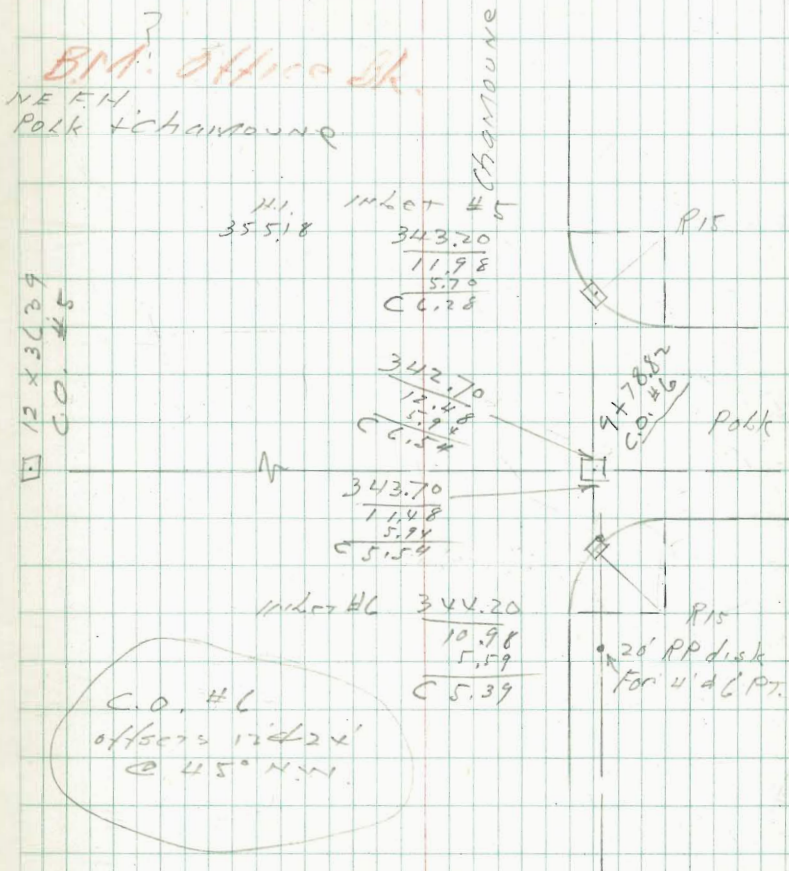 ?
B.M. Office Bk.
NE F.H.
Polk + Chamoune
Chamoune
H.I.
355.18
Inlet #5
343.20
11.98
5.70
C 6.28
R15
12 x 36 39
C.O. #5
342.70
12.48
5.94
C 6.54
9+78.82
C.O. #6
Polk
343.70
11.48
5.94
C 5.54
Inlet #6 344.20
10.98
5.59
C 5.39
R15
20' RP disk
For 4' & 6' PT.
C.O. #6
offsets
@ 45° N.W.